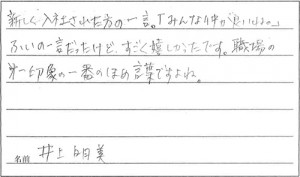 新しく入社された方の一言。「みんな仲が良いよね。」
ふいの一言だったけど、すごく嬉しかったです。職場の
第一印象の一番のほめ言葉ですよね。
名前 井上明美